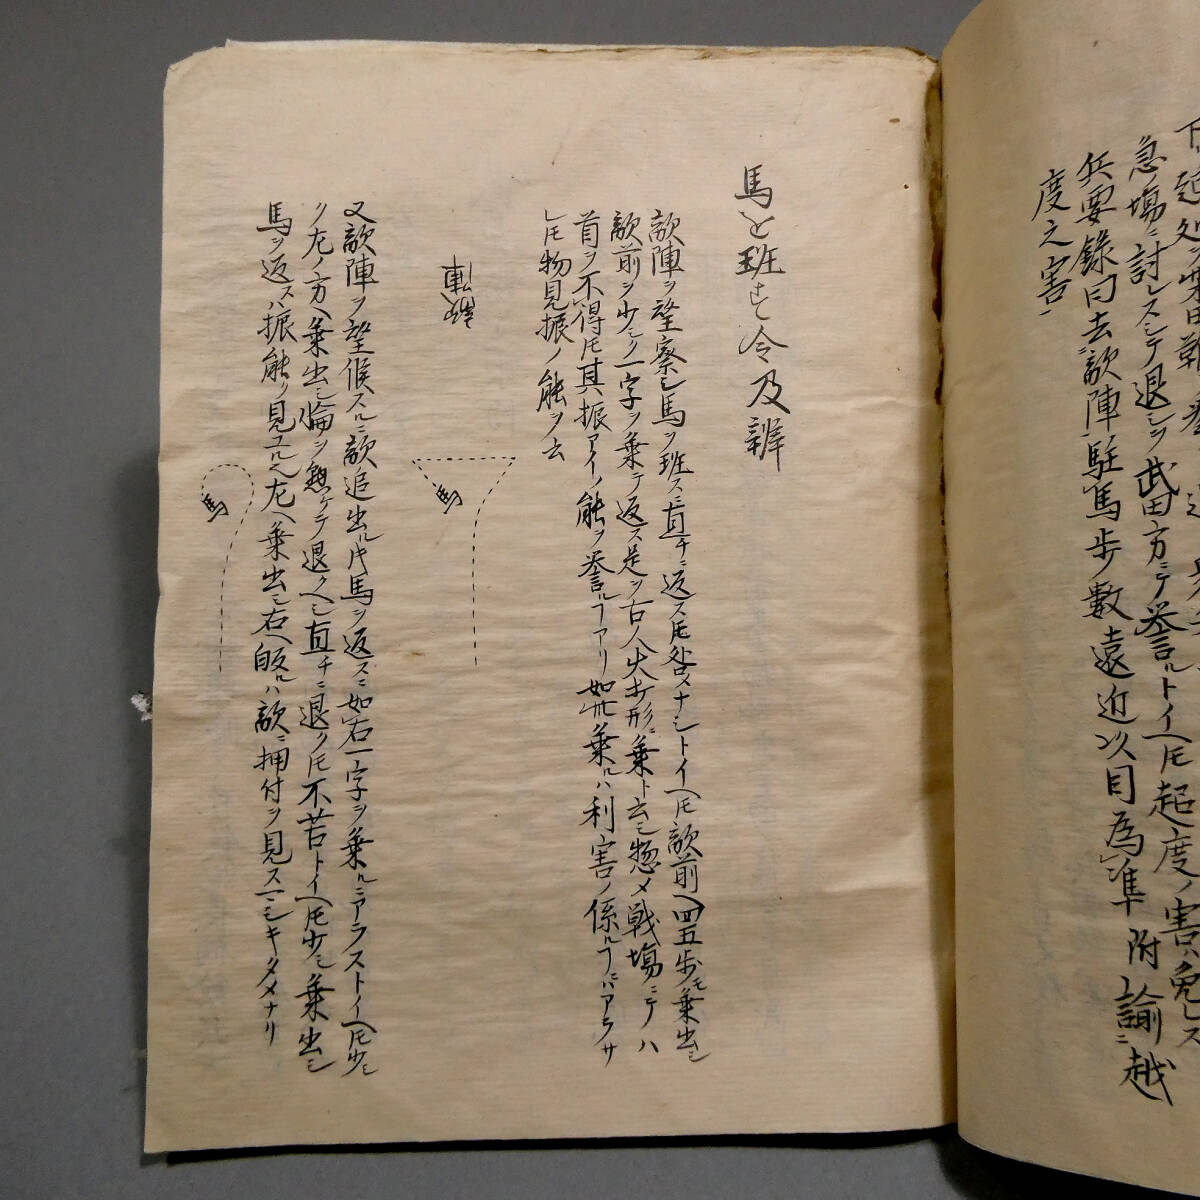 急ノ場ニ討レスシテ退シヲ武田方ニテ誉ルトイヘ𪜈起度ノ害ハ免レス
兵要録曰去敵陣駐馬歩數遠近以目為準附諭ニ越
度之害
馬を班す令及辨
敵陣ヲ望察シ馬ヲ班スニ直チニ返ス𪜈咎スナシトイヘ𪜈敵前ヘ四五歩モ乗出シ
敵前ヲ少シク一字ヲ乗テ返ス是ヲ古人火打形ニ乗ト云シ惣メ戦場ニテハ
首ヲ不得𪜈其振アイノ能ヲ誉ルヿアリ如此乗ルハ利害ノ係ルヿニハアラサ
レ𪜈物見振ノ能ヲ云
敵陣
馬
又敵陣ヲ望候スルニ敵追出ル片馬ヲ返スニ如右一字ヲ乗ルニアラストイヘ𪜈少シ
ク左ノ方ヘ乗出シ輪ヲ懸ケテ退クヘシ直チニ退ク𪜈不苦トイヘ𪜈少シ乗出シ
馬ヲ返スハ振能ク見ユルヘシ左ヘ乗出シ右ヘ皈ルハ敵ニ押付ヲ見スマシキタメナリ
馬